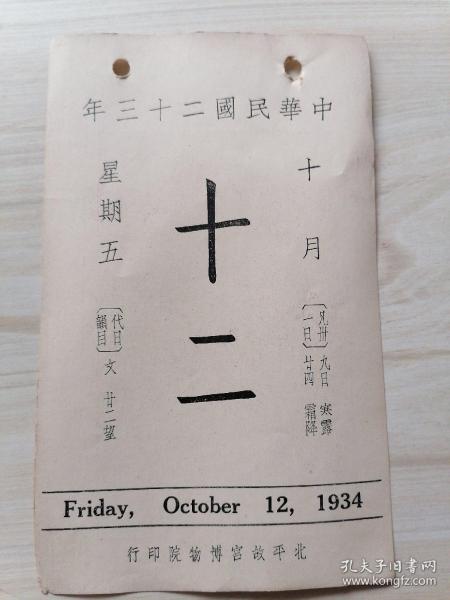 中華民國二十三年
十月
〔凡卅一日〕
九日 寒露
廿四 霜降
十二
星期五
〔韻目代日〕文 廿二望
Friday, October 12, 1934
北平故宮博物院印行
孔夫子旧书网
www.kongfz.com